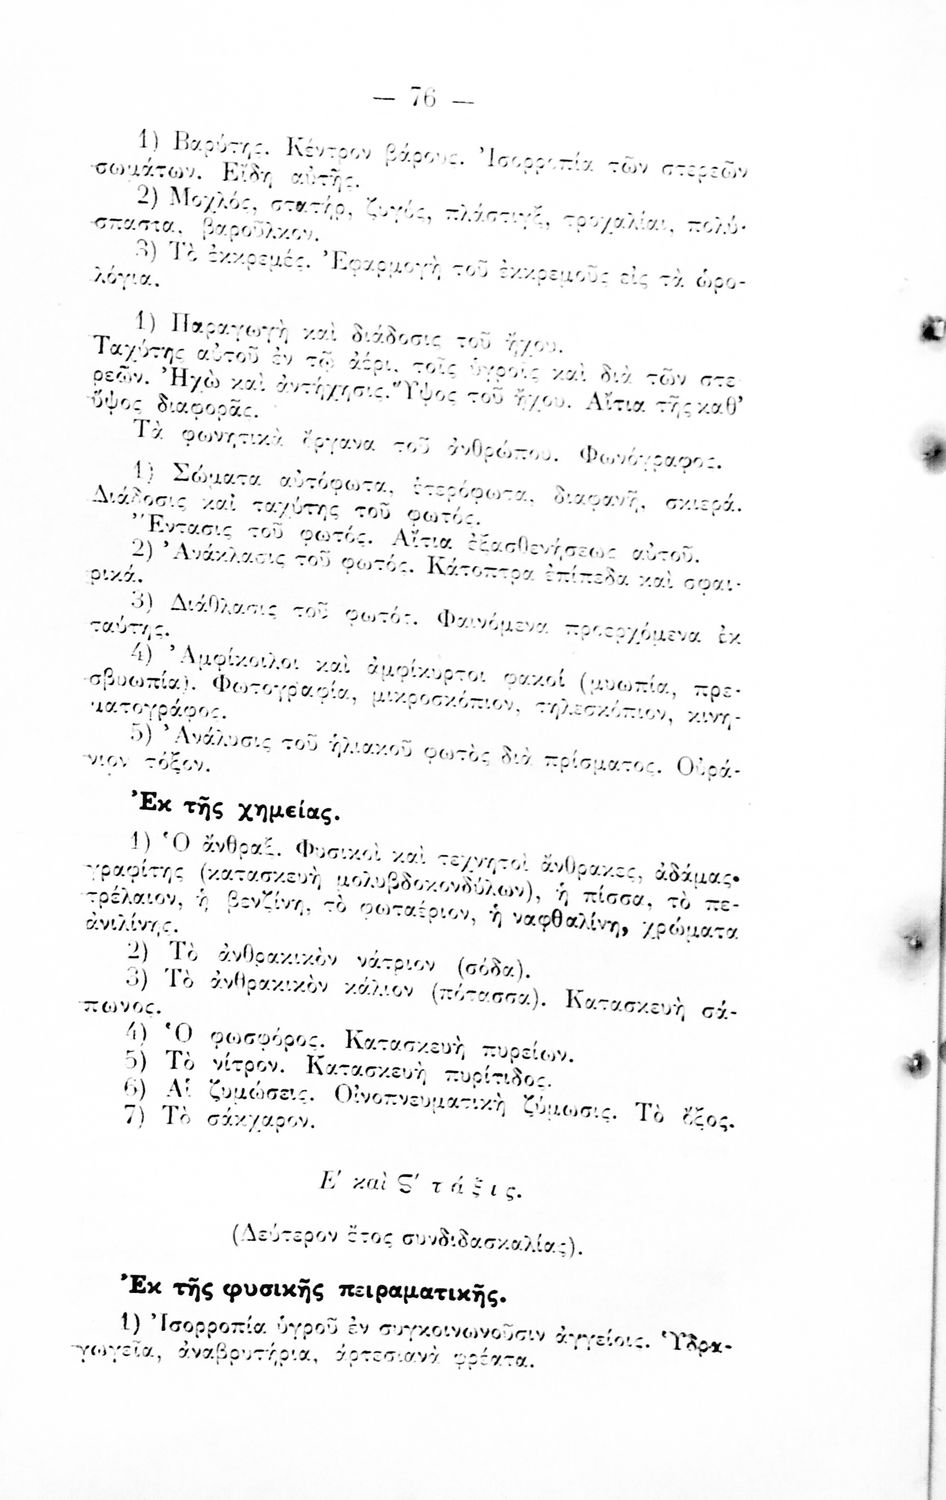 — 76 —
1) Βαρύτης. Κέντρον βάρους. Ἰσορροπία τῶν στερεῶν
σωμάτων. Εἴδη αὐτῆς.
2) Μοχλός, στατήρ, ζυγός, πλάστιγξ, τροχαλίαι, πολύ-
σπαστα, βαροῦλκον.
3) Τὸ ἐκκρεμές. Ἐφαρμογὴ τοῦ ἐκκρεμοῦς εἰς τὰ ὡρο-
λόγια.
1) Παραγωγὴ καὶ διάδοσις τοῦ ἤχου.
Ταχύτης αὐτοῦ ἐν τῷ ἀέρι, τοῖς ὑγροῖς καὶ διὰ τῶν στε-
ρεῶν. Ἠχὼ καὶ ἀντήχησις. Ὕψος τοῦ ἤχου. Αἴτια τῆς καθ’
ὕψος διαφορᾶς.
Τὰ φωνητικὰ ὄργανα τοῦ ἀνθρώπου. Φωνόγραφος.
1) Σώματα αὐτόφωτα, ἑτερόφωτα, διαφανῆ, σκιερά.
Διάδοσις καὶ ταχύτης τοῦ φωτός.
Ἔντασις τοῦ φωτός. Αἴτια ἐξασθενήσεως αὐτοῦ.
2) Ἀνάκλασις τοῦ φωτός. Κάτοπτρα ἐπίπεδα καὶ σφαι-
ρικά.
3) Διάθλασις τοῦ φωτός. Φαινόμενα προερχόμενα ἐκ
ταύτης.
4) Ἀμφίκοιλοι καὶ ἀμφίκυρτοι φακοί (μυωπία, πρε-
σβυωπία). Φωτογραφία, μικροσκόπιον, τηλεσκόπιον, κινη-
ματογράφος.
5) Ἀνάλυσις τοῦ ἡλιακοῦ φωτὸς διὰ πρίσματος. Οὐρά-
νιον τόξον.
Ἐκ τῆς χημείας.
1) Ὁ ἄνθραξ. Φυσικοὶ καὶ τεχνητοὶ ἄνθρακες, ἀδάμας,
γραφίτης (κατασκευὴ μολυβδοκονδύλων), ἡ πίσσα, τὸ πε-
τρέλαιον, ἡ βενζίνη, τὸ φωταέριον, ἡ ναφθαλίνη, χρώματα
ἀνιλίνης.
2) Τὸ ἀνθρακικὸν νάτριον (σόδα).
3) Τὸ ἀνθρακικὸν κάλιον (πότασσα). Κατασκευὴ σά-
πωνος.
4) Ὁ φωσφόρος. Κατασκευὴ πυρείων.
5) Τὸ νίτρον. Κατασκευὴ πυρίτιδος.
6) Αἱ ζυμώσεις. Οἰνοπνευματικὴ ζύμωσις. Τὸ ὄξος.
7) Τὸ σάκχαρον.
Ε′ καὶ Ϛ′ τάξις.
(Δεύτερον ἔτος συνδιδασκαλίας).
Ἐκ τῆς φυσικῆς πειραματικῆς.
1) Ἰσορροπία ὑγροῦ ἐν συγκοινωνοῦσιν ἀγγείοις. Ὑδρα-
γωγεῖα, ἀναβρυτήρια, ἀρτεσιανὰ φρέατα.